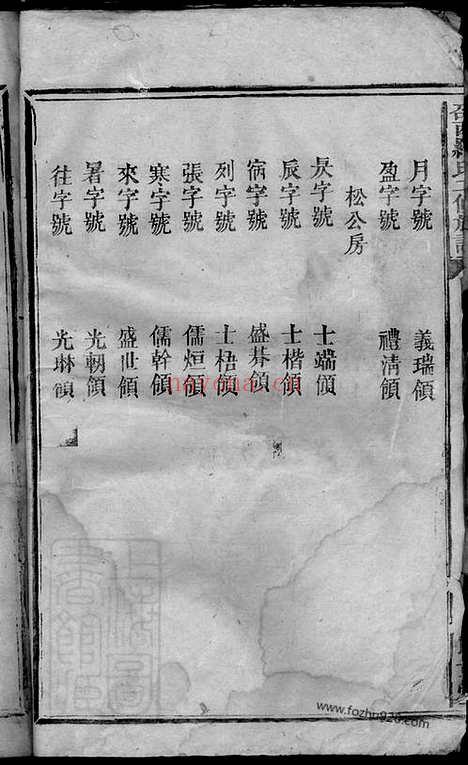 月字號 義瑞領
盈字號 禮清領
松公房
昃字號 士端領
辰字號 士楷領
宿字號 盛棊領
列字號 士梧領
張字號 儒烜領
寒字號 儒幹領
來字號 盛世領
暑字號 光朝領
往字號 光琳領
www.fozhu920.com